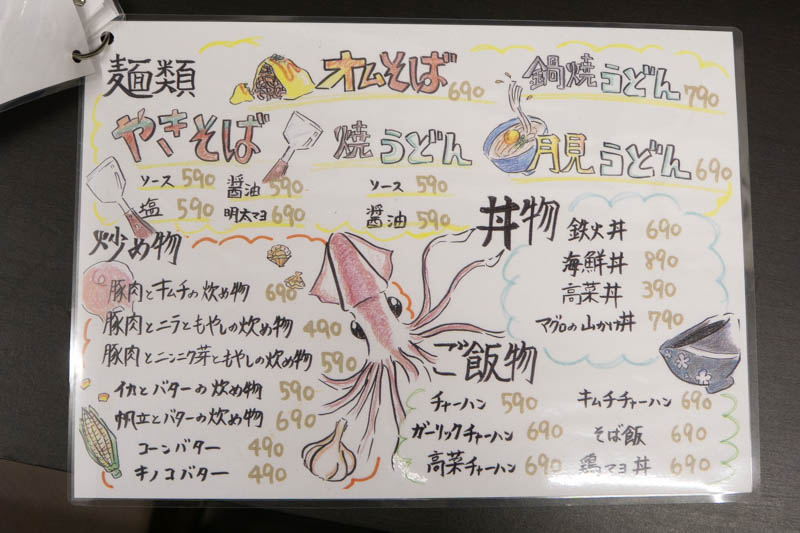 麺類
オムそば 690
鍋焼うどん 790
やきそば
ソース 590
醤油 590
塩 590
明太マヨ 690
焼うどん
ソース 590
醤油 590
月見うどん 690
炒め物
豚肉とキムチの炒め物 690
豚肉とニラともやしの炒め物 490
豚肉とニンニク芽ともやしの炒め物 590
イカとバターの炒め物 590
帆立とバターの炒め物 690
コーンバター 490
キノコバター 490
丼物
鉄火丼 690
海鮮丼 890
高菜丼 390
マグロの山かけ丼 790
ご飯物
チャーハン 590
キムチチャーハン 690
ガーリックチャーハン 690
そば飯 690
高菜チャーハン 690
鶏マヨ丼 690